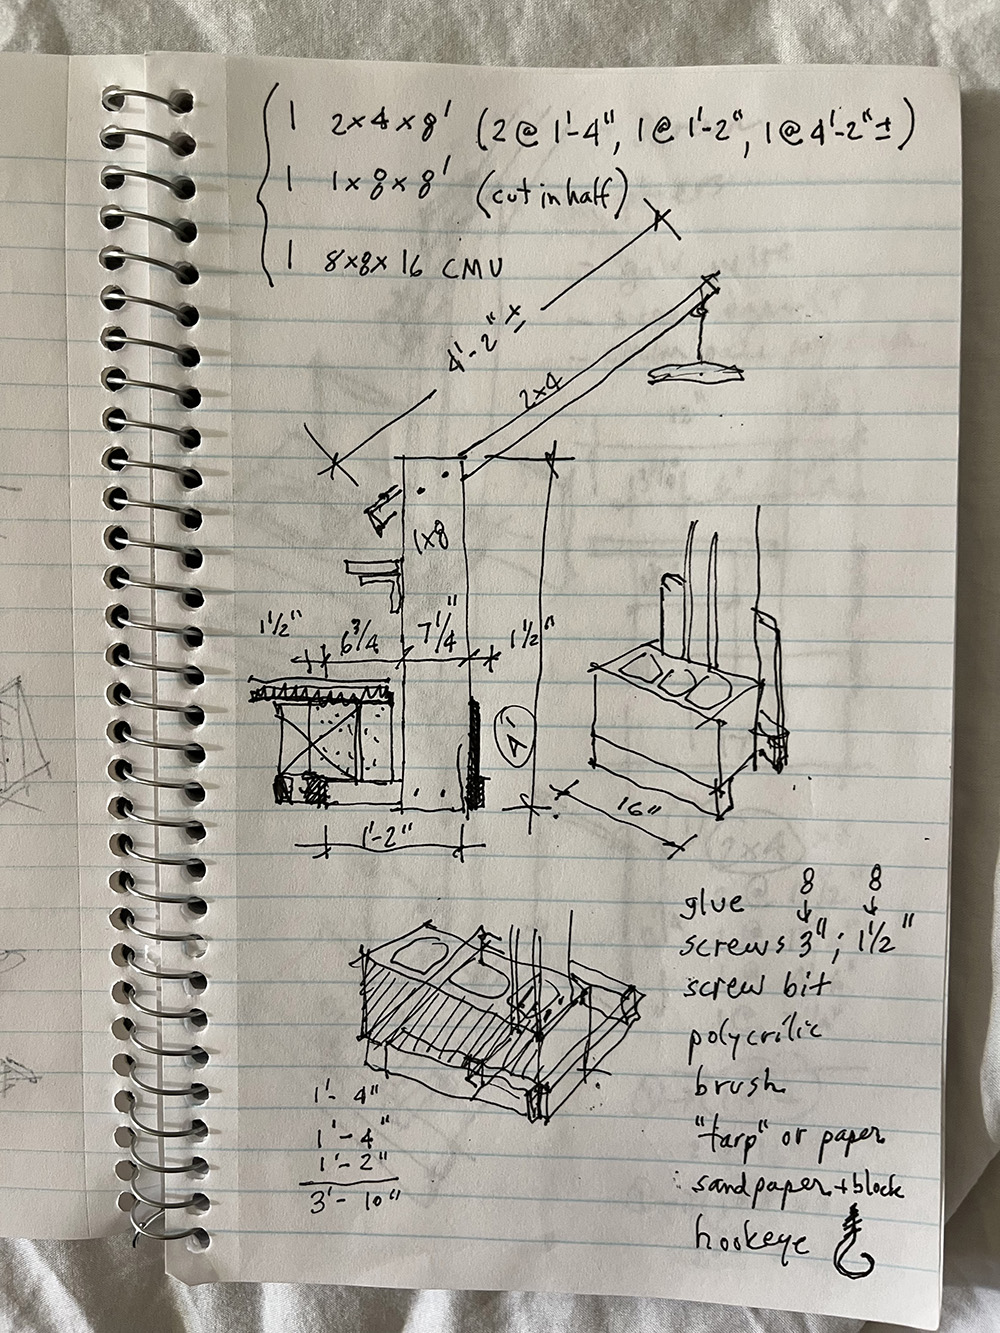 1 2x4x8' (2 @ 1'-4", 1 @ 1'-2", 1 @ 4'-2" ±)
1 1x8x8' (cut in half)
1 8x8x16 CMU
4'-2" ±
2x4
1x8
1 1/2" 6 3/4 7 1/4" 1 1/2"
4'
1'-2"
16"
8 8
glue
screws 3"; 1 1/2"
screw bit
polycrilic
brush
"tarp" or paper
sandpaper + block
hookeye
1'-4"
1'-4"
1'-2"
3'-10"